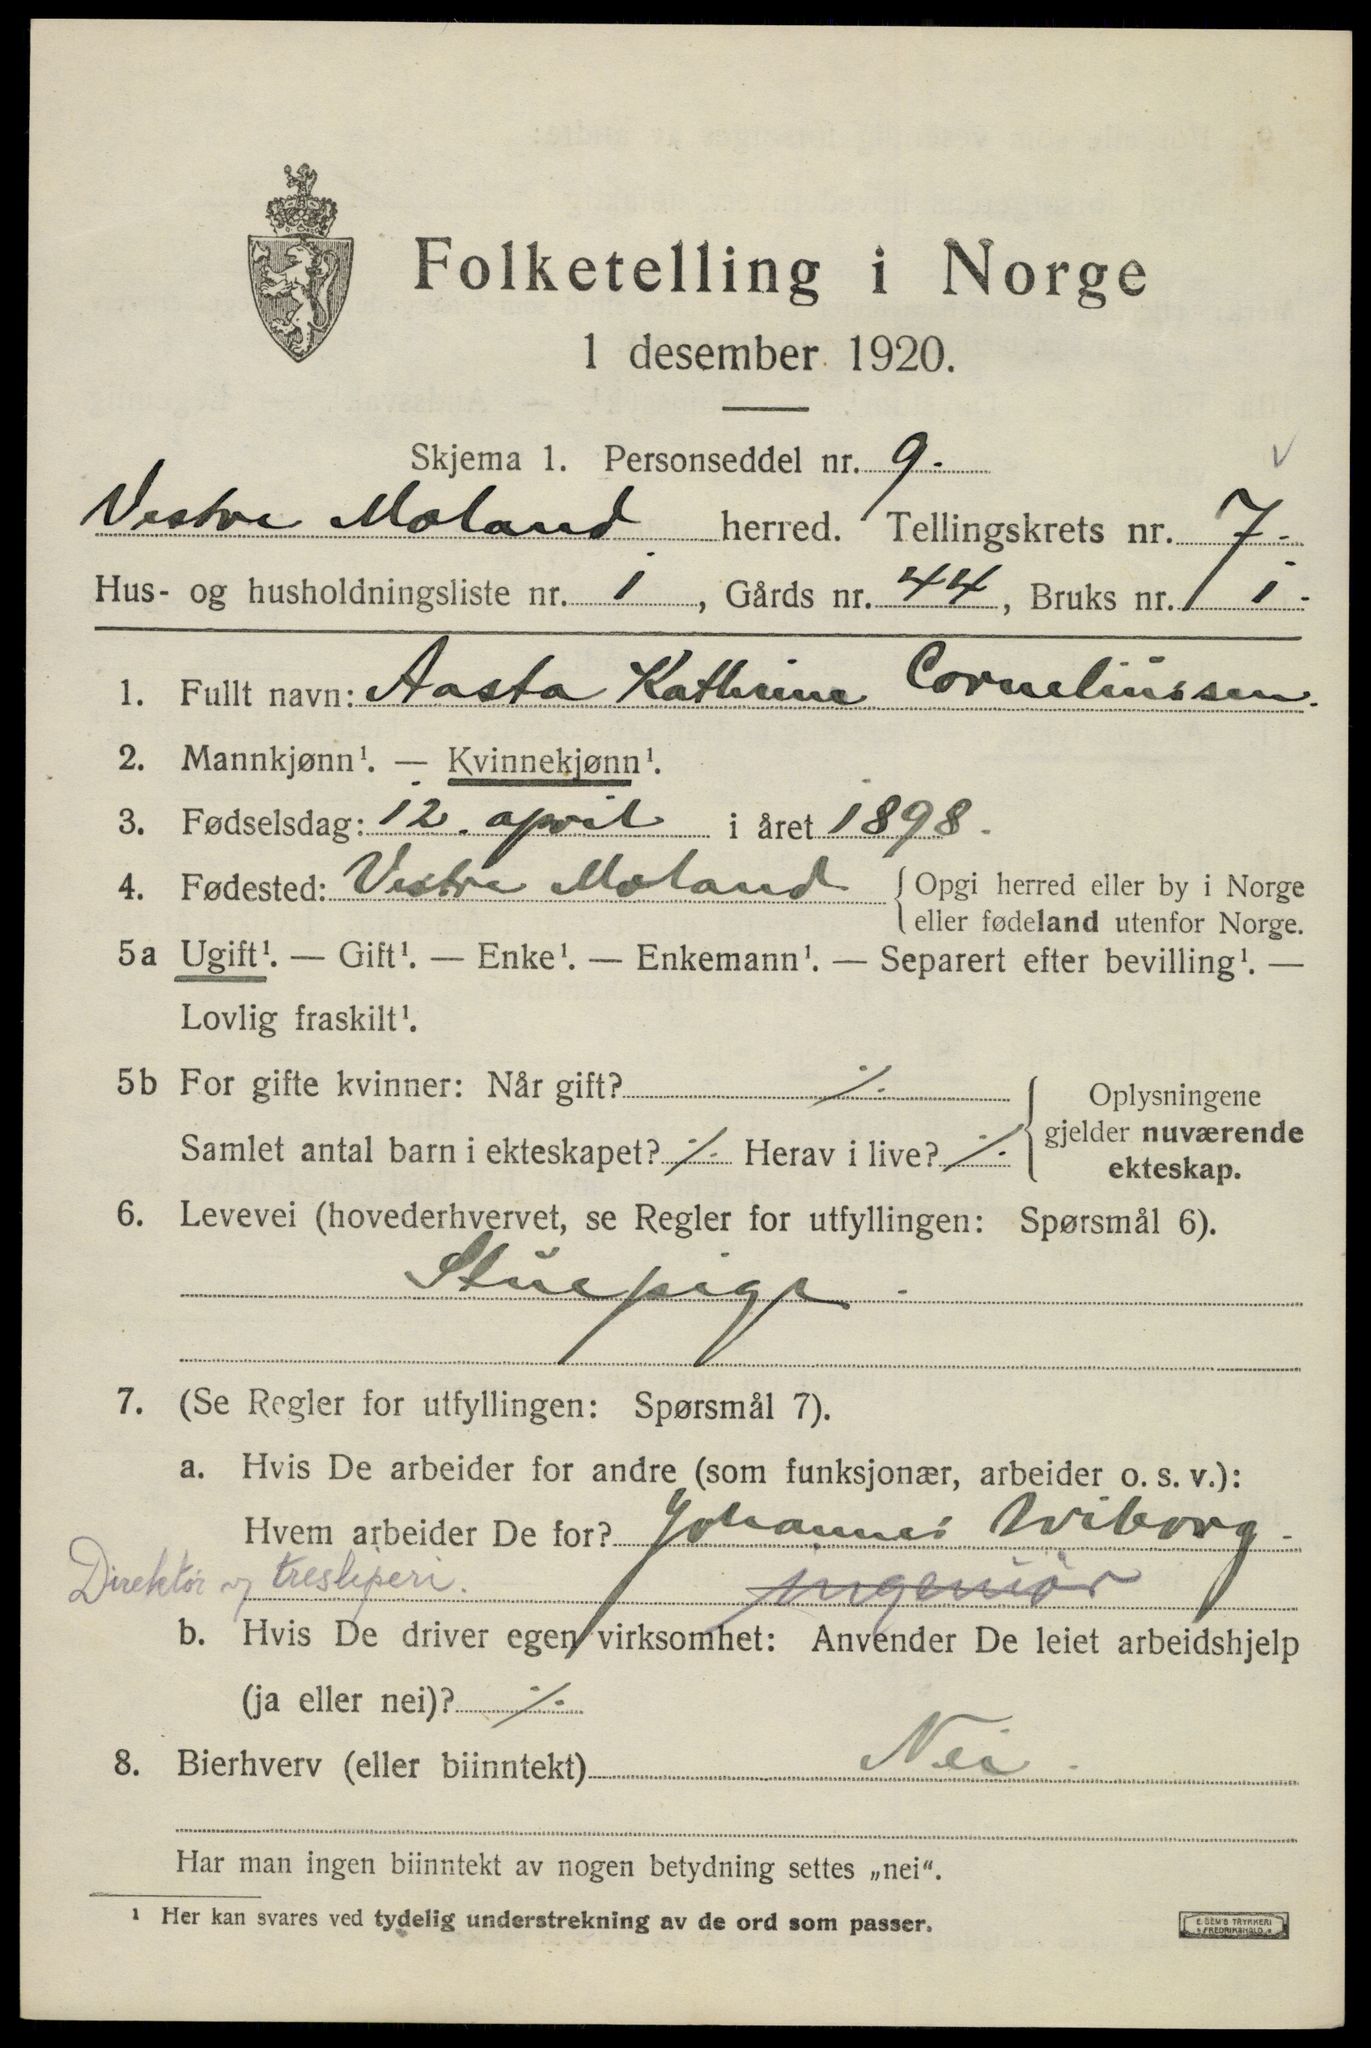 Folketelling i Norge
1 desember 1920.
Skjema 1. Personseddel nr. 9.
Vestre Moland herred. Tellingskrets nr. 7.
Hus- og husholdningsliste nr. 1, Gårds nr. 44, Bruks nr. 1.
1. Fullt navn: Aasta Kathrine Corneliussen.
2. Mannkjønn¹. — Kvinnekjønn¹.
3. Fødselsdag: 12. april i året 1898.
4. Fødested: Vestre Moland { Opgi herred eller by i Norge
eller fødeland utenfor Norge.
5a Ugift¹. — Gift¹. — Enke¹. — Enkemann¹. — Separert efter bevilling¹. —
Lovlig fraskilt¹.
5b For gifte kvinner: Når gift? ·/.
Samlet antal barn i ekteskapet? ·/. Herav i live? ·/.
Oplysningene
gjelder nuværende
ekteskap.
6. Levevei (hovederhvervet, se Regler for utfyllingen: Spørsmål 6).
Stuepige.
7. (Se Regler for utfyllingen: Spørsmål 7).
a. Hvis De arbeider for andre (som funksjonær, arbeider o. s. v.):
Hvem arbeider De for? Johannes Wiborg.
Direktør v tresliperi. ingeniør
b. Hvis De driver egen virksomhet: Anvender De leiet arbeidshjelp
(ja eller nei)? ·/.
8. Bierhverv (eller biinntekt) Nei.
Har man ingen biinntekt av nogen betydning settes „nei“.
¹ Her kan svares ved tydelig understrekning av de ord som passer.
E. SEM'S TRYKKERI
FREDRIKSHALD